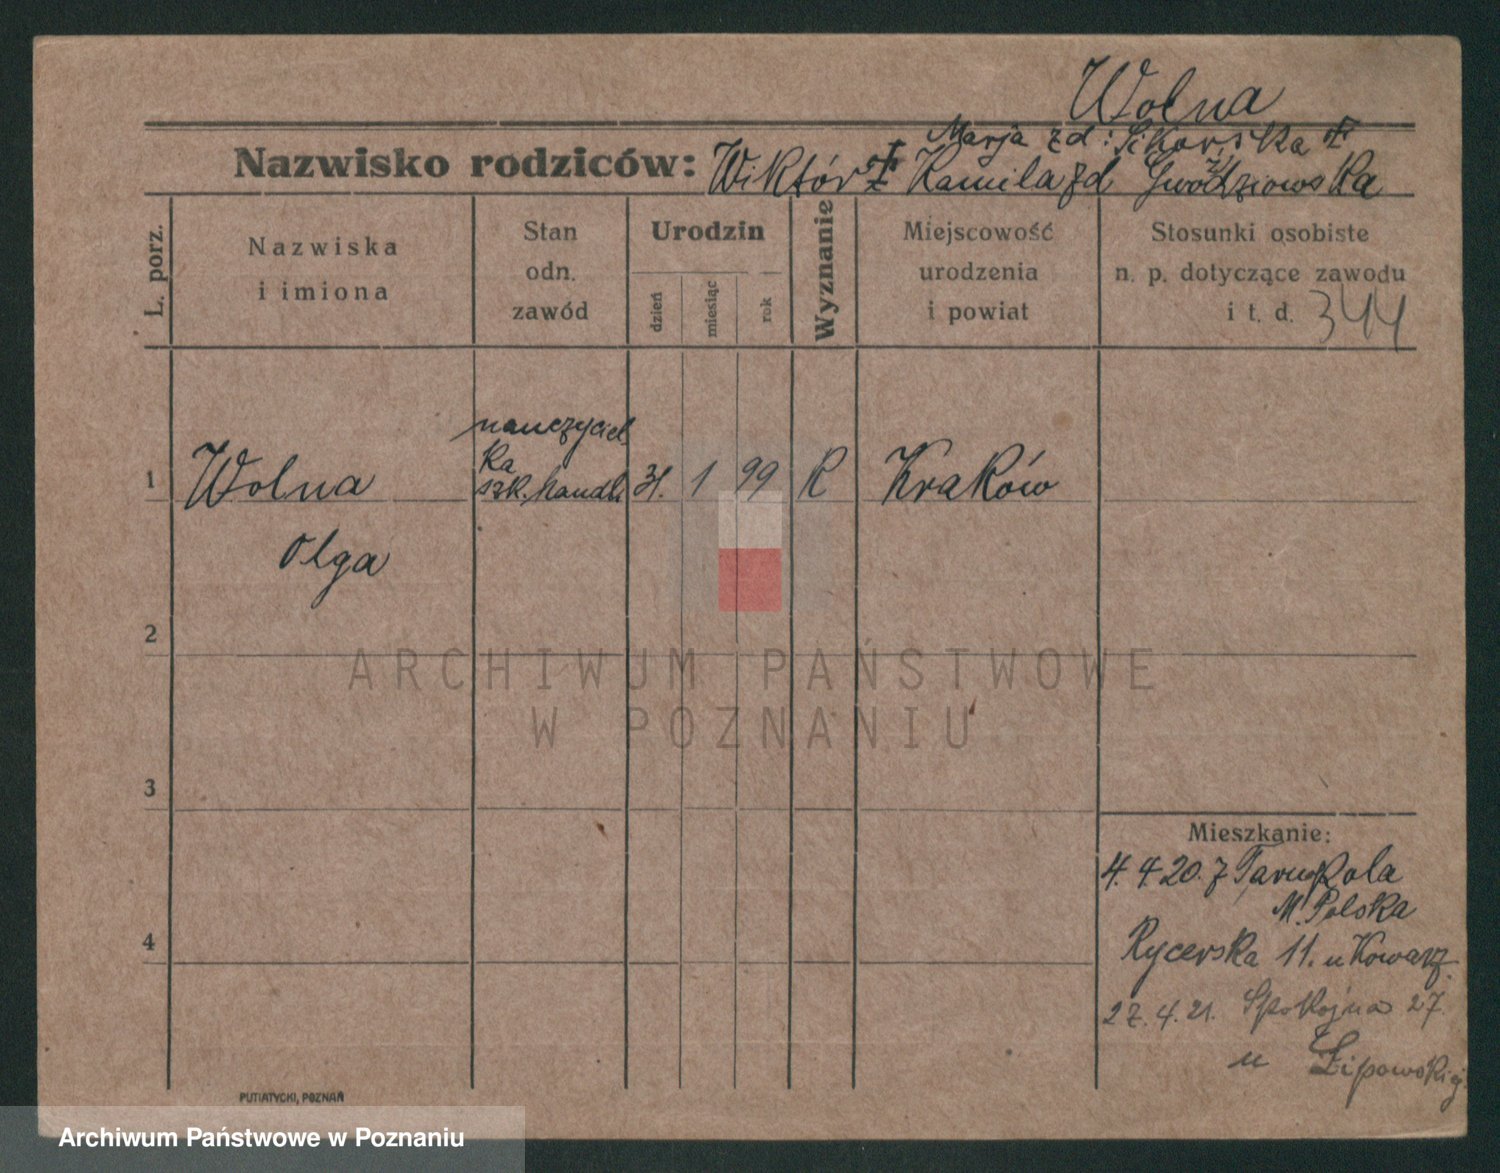 Wolna
Marja zd: Sikorska
Nazwisko rodziców: Wiktór Kamila zd Gwoździowska
L. porz.
Nazwiska
i imiona
Stan
odn.
zawód
Urodzin
dzień
miesiąc
rok
Wyznanie
Miejscowość
urodzenia
i powiat
Stosunki osobiste
n. p. dotyczące zawodu
i t. d. 344
nauczyciel
ka
1 Wolna szk. handl. 31. 1 99 R Kraków
Olga
2
ARCHIWUM PAŃSTWOWE
W POZNANIU
3
Mieszkanie:
4. 4 20. z Tarnopola
M. Polska
4
Rycerska 11. u Kowarz.
27. 4. 21. Spokojna 27.
u Lipowskiej
PUTIATYCKI, POZNAŃ
Archiwum Państwowe w Poznaniu